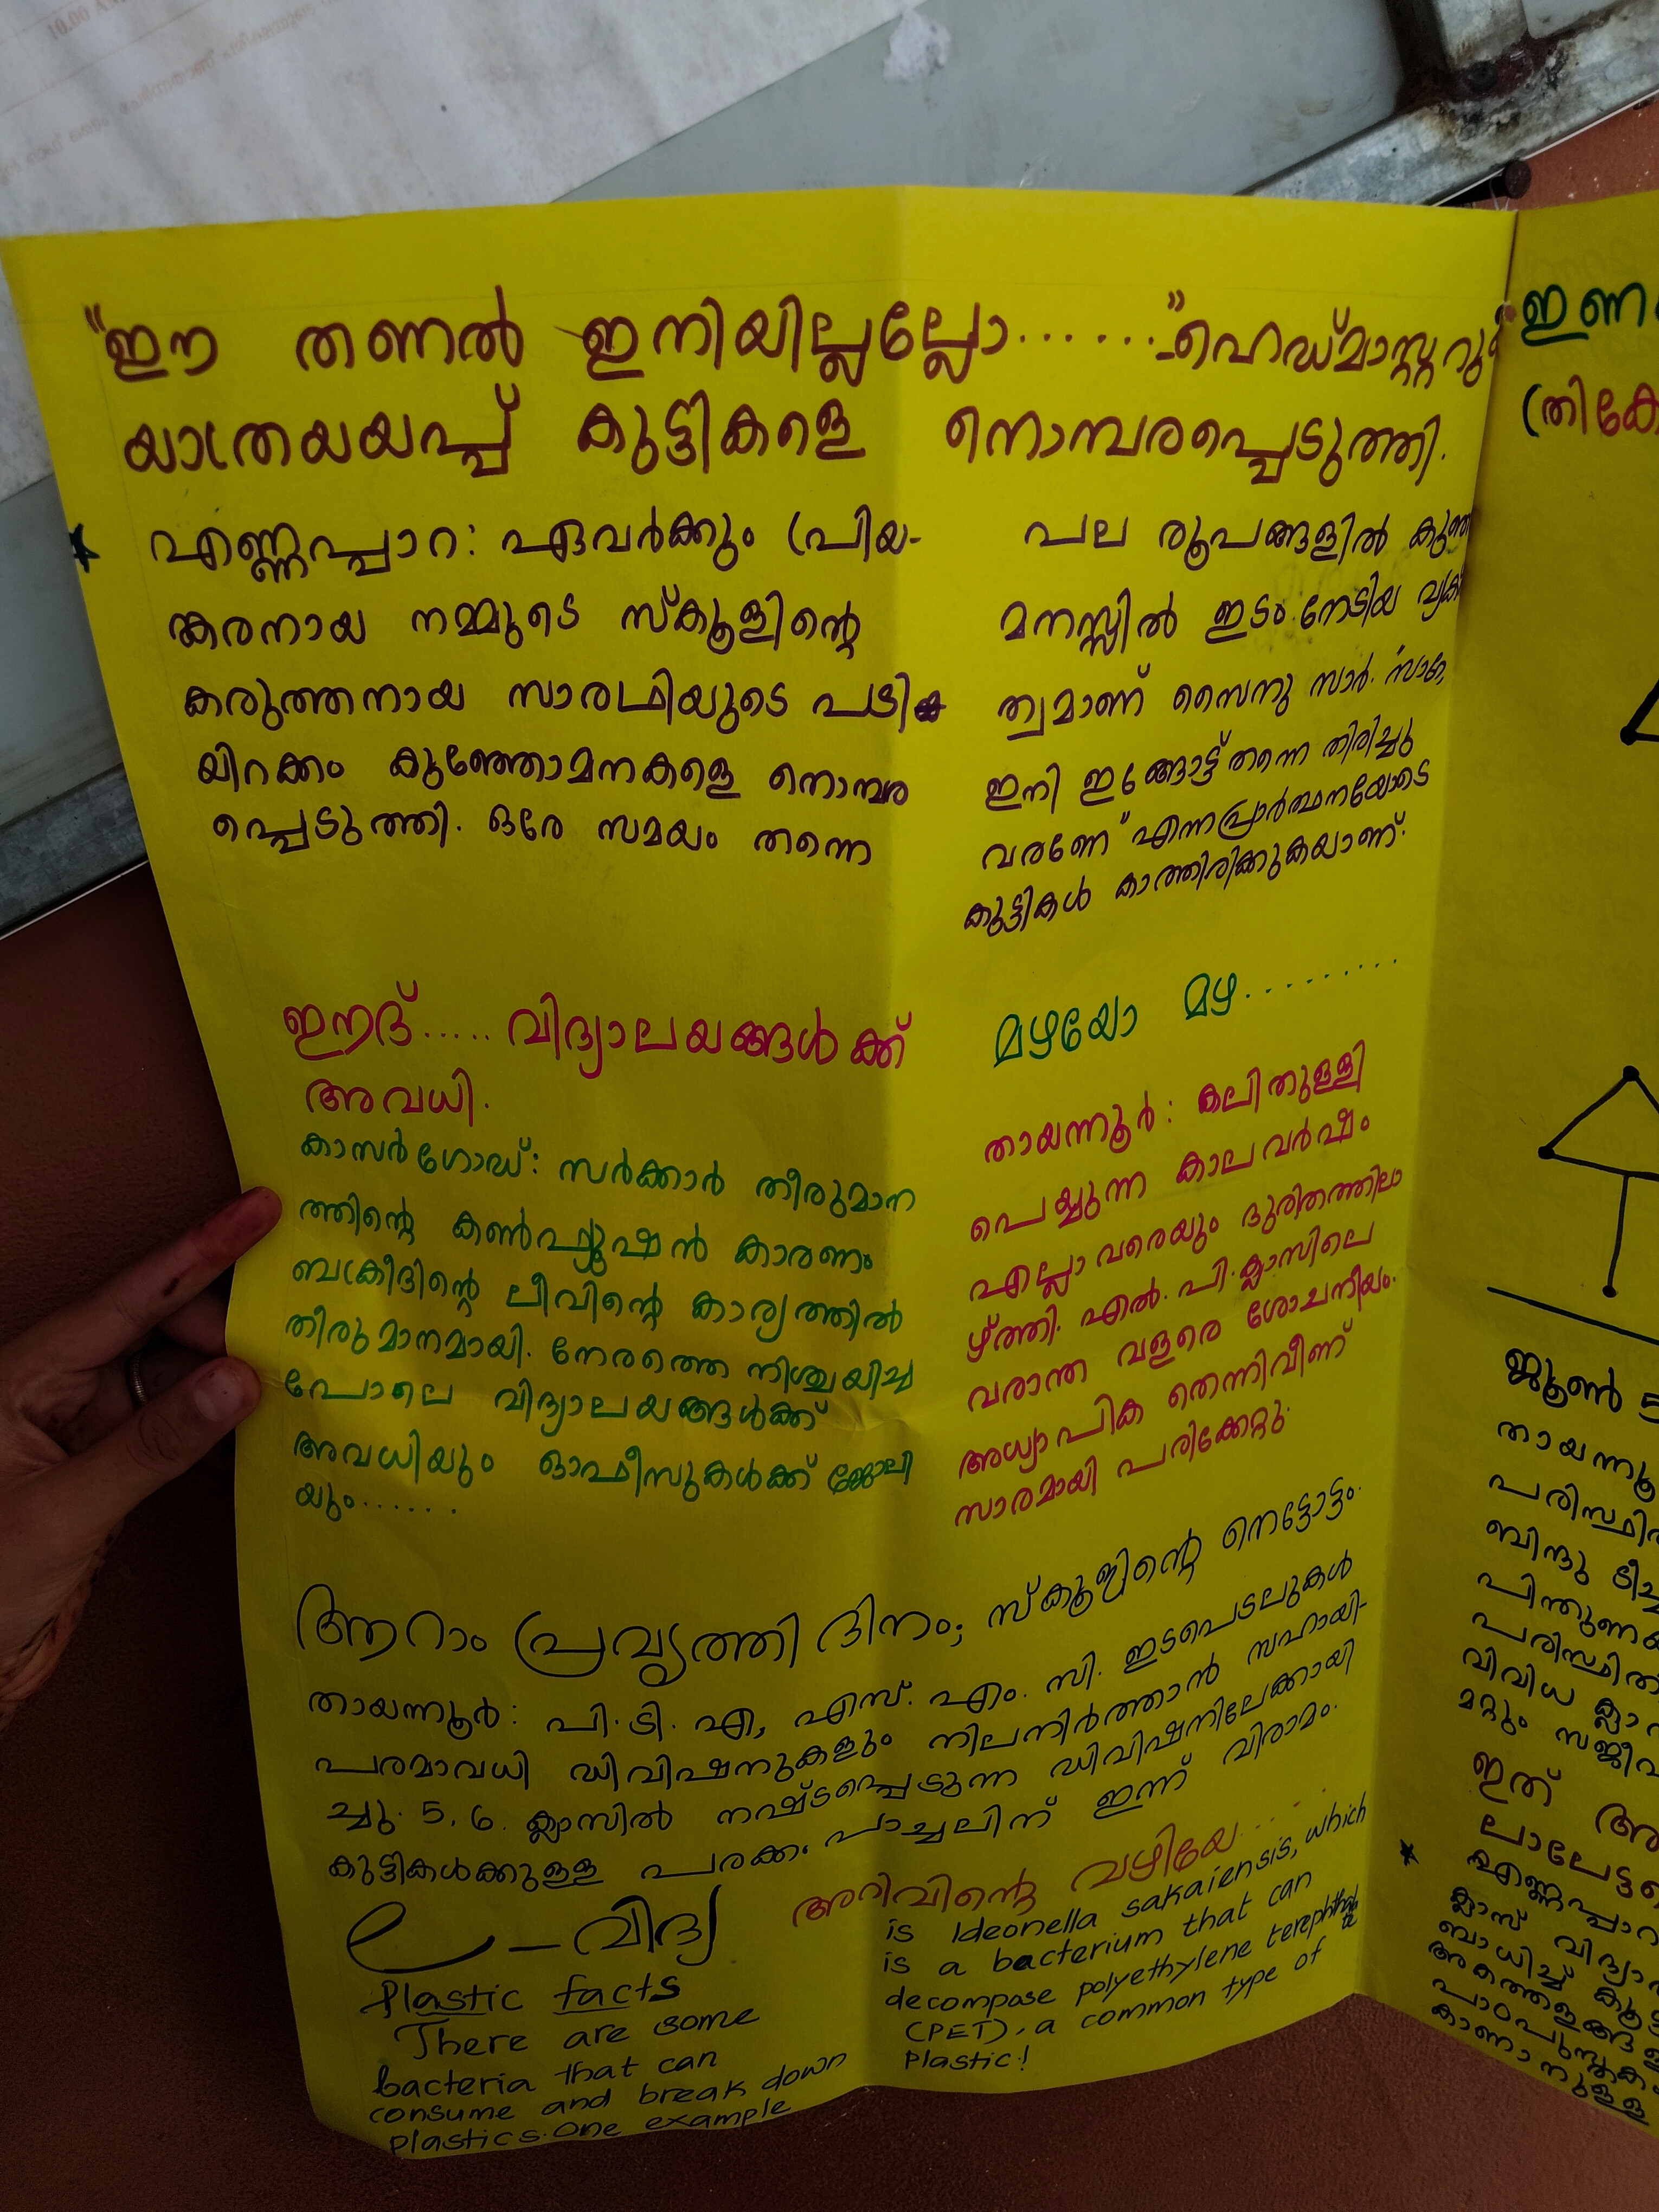 "ഈ തണൽ ഇനിയില്ലല്ലോ......"-ഹെഡ്മാസ്റ്ററുടെ
യാത്രയയപ്പ് കുട്ടികളെ നൊമ്പരപ്പെടുത്തി.
എണ്ണപ്പാറ: ഏവർക്കും പ്രിയ-
ങ്കരനായ നമ്മുടെ സ്കൂളിന്റെ
കരുത്തനായ സാരഥിയുടെ പടി
യിറക്കം കുഞ്ഞോമനകളെ നൊമ്പര
പ്പെടുത്തി. ഒരേ സമയം തന്നെ
പല രൂപങ്ങളിൽ
മനസ്സിൽ ഇടം നേടിയ
ത്വമാണ് സൈനു സാർ. "സാറേ,
ഇനി ഇങ്ങോട്ട് തന്നെ തിരിച്ചു
വരണേ" എന്ന പ്രാർത്ഥനയോടെ
കുട്ടികൾ കാത്തിരിക്കുകയാണ്.
ഈദ്..... വിദ്യാലയങ്ങൾക്ക്
അവധി.
കാസർഗോഡ്: സർക്കാർ തീരുമാന
ത്തിന്റെ കൺഫ്യൂഷൻ കാരണം
ബക്രീദിന്റെ ലീവിന്റെ കാര്യത്തിൽ
തീരുമാനമായി. നേരത്തെ നിശ്ചയിച്ച
പോലെ വിദ്യാലയങ്ങൾക്ക്
അവധിയും ഓഫീസുകൾക്ക് ജോലി
യും......
മഴയോ മഴ.........
തായന്നൂർ: കലിതുള്ളി
പെയ്യുന്ന കാലവർഷം
എല്ലാവരെയും ദുരിതത്തിലാ
ഴ്ത്തി. എൽ. പി. ക്ലാസിലെ
വരാന്ത വളരെ ശോചനീയം.
അധ്യാപിക തെന്നിവീണ്
സാരമായി പരിക്കേറ്റു.
ആറാം പ്രവൃത്തി ദിനം; സ്കൂളിന്റെ നെട്ടോട്ടം.
തായന്നൂർ: പി. ടി. എ, എസ്. എം. സി. ഇടപെടലുകൾ
പരമാവധി ഡിവിഷനുകളും നിലനിർത്താൻ സഹായി-
ച്ചു. 5, 6. ക്ലാസിൽ നഷ്ടപ്പെടുന്ന ഡിവിഷനിലേക്കായി
കുട്ടികൾക്കുള്ള പരക്കം പാച്ചലിന് ഇന്ന് വിരാമം.
e-വിദ്യ അറിവിന്റെ വഴിയേ....
Plastic facts
There are some
bacteria that can
consume and break down
plastics. One example
is Ideonella sakaiensis, which
is a bacterium that can
decompose polyethylene terephthalate
(PET), a common type of
Plastic!
ജൂൺ 5
പരിസ്ഥിതി
ബിന്ദു
വിവിധ
മറ്റും
ഇത്
എണ്ണപ്പാറ
ക്ലാസ്
ബാധിച്ച്
കാണാനുള്ള